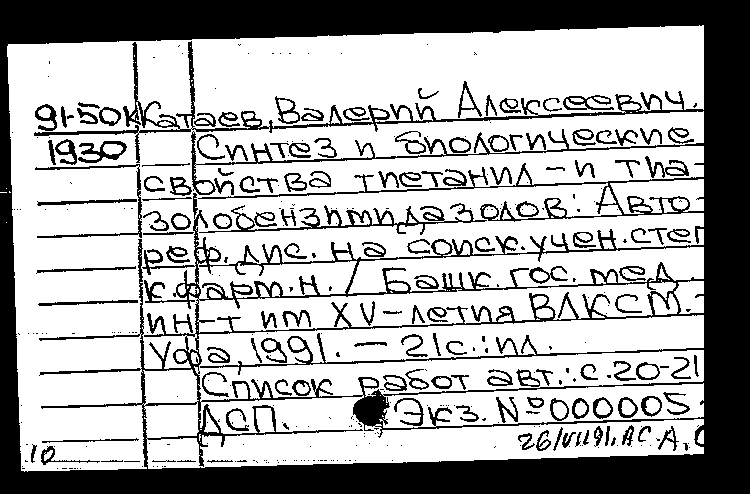 91-50к Катаев, Валерий Алексеевич.
1930 Синтез и биологические
свойства тиетанил-и тиа-
золобензимидазолов: Авто-
реф. дис. на соиск. учен. степ
к.фарм.н. / Башк. гос. мед.
ин-т им XV-летия ВЛКСМ.-
Уфа, 1991. — 21с.:ил.
Список работ авт.: с.20-21
ДСП. Экз. №000005.
10 26/VII91, АС. А.